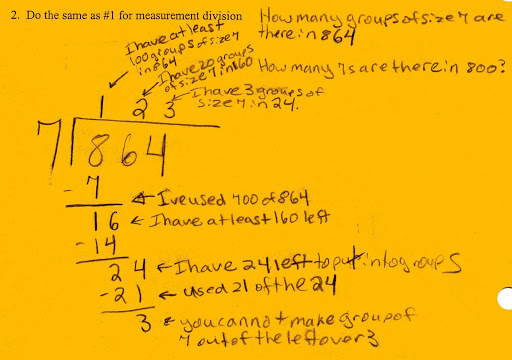 2. Do the same as #1 for measurement division
How many groups of size 7 are
there in 864
I have at least
100 groups of size 7
in 864
I have 20 groups
of size 7 in 160
How many 7s are there in 800?
I have 3 groups of
size 7 in 24.
1 2 3
7 864
- 7 I've used 700 of 864
16 I have at least 160 left
-14
24 I have 24 left to put into groups
-21 used 21 of the 24
3 you cannot make group of
7 out of the leftover 3